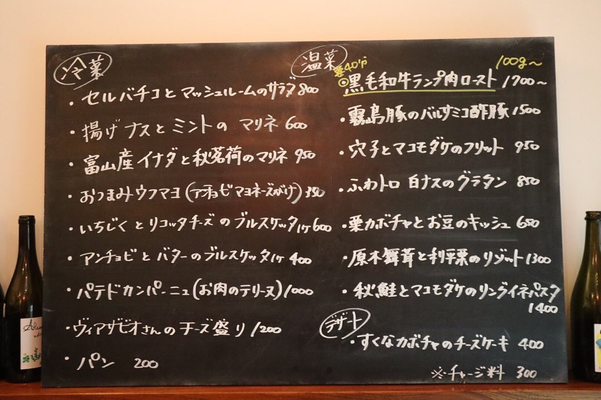 冷菜
・セルバチコとマッシュルームのサラダ 800
・揚げナスとミントのマリネ 600
・富山産イナダと秋茗荷のマリネ 950
・おつまみウフマヨ(アンチョビマヨネーズがけ) 350
・いちじくとリコッタチーズのブルスケッタ1ケ 600
・アンチョビとバターのブルスケッタ1ケ 400
・パテドカンパーニュ(お肉のテリーヌ) 1000
・ヴィアザビオさんのチーズ盛り 1200
・パン 200
温菜
100g〜
40分
◎黒毛和牛ランプ肉ロースト 1700〜
・霧島豚のバルサミコ酢豚 1500
・穴子とマコモダケのフリット 950
・ふわトロ 白ナスのグラタン 850
・栗カボチャとお豆のキッシュ 650
・原木舞茸と利平栗のリゾット 1300
・秋鮭とマコモダケのリングイネパスタ
1400
デザート
・すくなカボチャのチーズケーキ 400
※チャージ料 300